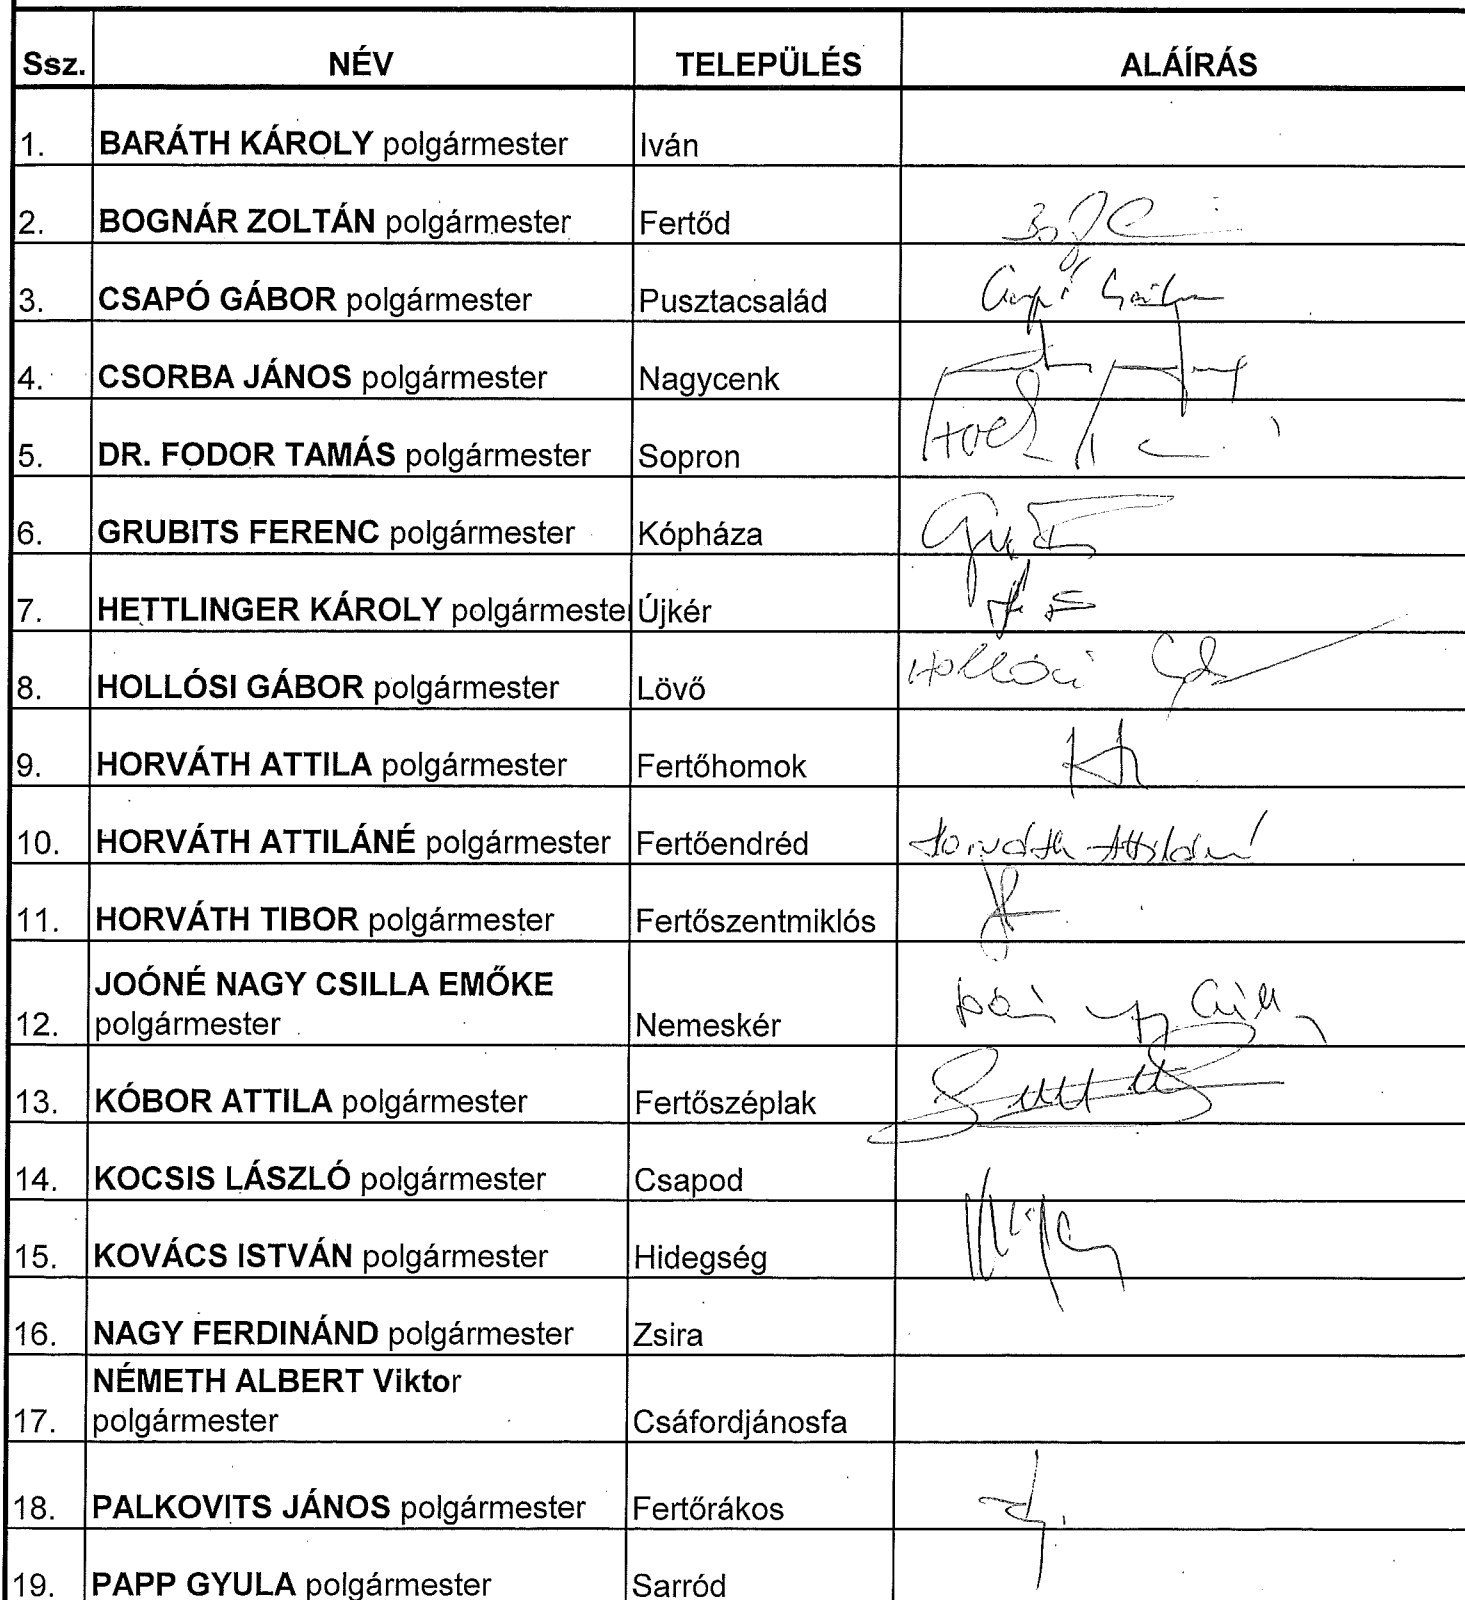 Ssz. NÉV TELEPÜLÉS ALÁÍRÁS
1. BARÁTH KÁROLY polgármester Iván
2. BOGNÁR ZOLTÁN polgármester Fertőd
3. CSAPÓ GÁBOR polgármester Pusztacsalád
4. CSORBA JÁNOS polgármester Nagycenk
5. DR. FODOR TAMÁS polgármester Sopron
6. GRUBITS FERENC polgármester Kópháza
7. HETTLINGER KÁROLY polgármeste Újkér
8. HOLLÓSI GÁBOR polgármester Lövő Hollósi
9. HORVÁTH ATTILA polgármester Fertőhomok
10. HORVÁTH ATTILÁNÉ polgármester Fertőendréd Horváth Attiláné
11. HORVÁTH TIBOR polgármester Fertőszentmiklós
JOÓNÉ NAGY CSILLA EMŐKE
12. polgármester Nemeskér
13. KÓBOR ATTILA polgármester Fertőszéplak
14. KOCSIS LÁSZLÓ polgármester Csapod
15. KOVÁCS ISTVÁN polgármester Hidegség
16. NAGY FERDINÁND polgármester Zsira
NÉMETH ALBERT Viktor
17. polgármester Csáfordjánosfa
18. PALKOVITS JÁNOS polgármester Fertőrákos
19. PAPP GYULA polgármester Sarród